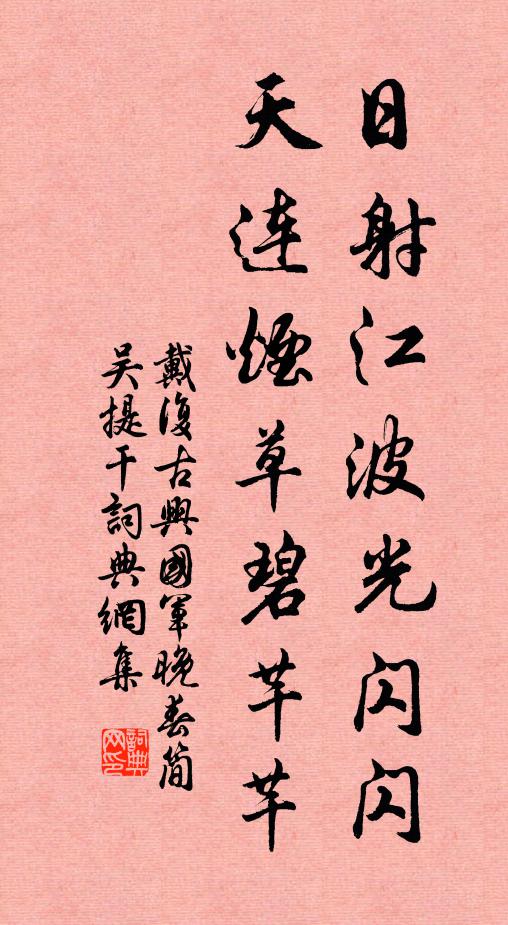 日射江波光閃閃
天連煙草碧芊芊
戴復古興國軍晚春簡
吴提干詞典網集
詞典
网印